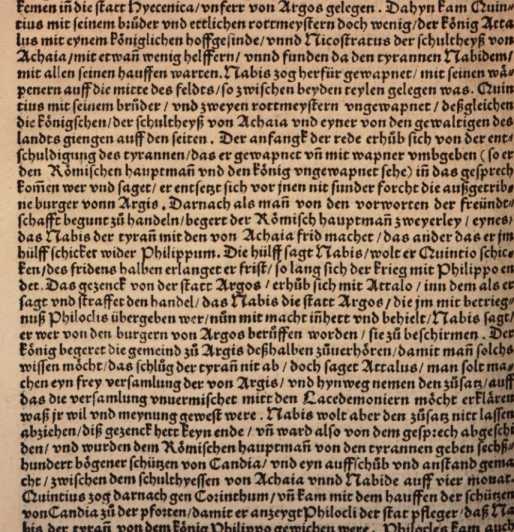 kemen in die statt Hycenica/vnferr von Argos gelegen. Dahyn kam Quin⸗
tius mit seinem brüder vnd ettlichen rottmeystern doch wenig/der König Atta
lus mit eynem Königlichen hoffgesinde/vnnd Nicostratus der schultheyß von
Achaia/mit etwañ wenig helffern/vnnd funden da den tyrannen Nabidem/
mit allen seinen hauffen warten. Nabis zog herfür gewapnet/mit seinen wä⸗
penern auff die mitte des feldts/so zwischen beyden teylen gelegen was. Quin
tius mit seinem brüder/vnd zweyen rottmeystern vngewapnet/deßgleichen
die königschen/der schultheyß von Achaia vnd eyner von den gewaltigen des
landts giengen auff den seiten. Der anfangk der rede erhüb sich von der ent⸗
schuldigung des tyrannen/das er gewapnet vñ mit wapner vmbgeben (so er
den Römischen hauptmañ vnd den könig vngewapnet sehe) iñ das gesprech
kom̃en wer vnd saget/er entsetzt sich vor jnen nit sunder forcht die außgetrib⸗
ne burger vonn Argis. Darnach als mañ von den vorworten der freündt⸗
schafft begunt zů handeln/begert der Römisch hauptmañ zweyerley/eynes/
das Nabis der tyrañ mit den von Achaia frid machet/das ander das er jm
hülff schicket wider Philippum. Die hülff sagt Nabis/wolt er Quintio schic⸗
ken/des fridens halben erlanget er frist/so lang sich der krieg mit Philippo en
det. Das gezenck von der statt Argos/erhüb sich mit Attalo/inn dem als er
sagt vnd straffet den handel/das Nabis die statt Argos/die jm mit betrieg⸗
nuß Philoclis übergeben wer/nün mit macht iñhett vnd behielt/Nabis sagt/
er wer von den burgern von Argos berüffen worden/sie zů beschirmen. Der
könig begeret die gemeind zů Argis deßhalben zůuerhören/damit mañ solchs
wissen möcht/das schlůg der tyrañ nit ab/doch saget Attalus/man solt ma⸗
chen eyn frey versamlung der von Argis/vnd hynweg nemen den zůsatz/auff
das die versamlung vnuermischet mitt den Lacedemoniern möcht erklären
waß jr wil vnd meynung gewest were. Nabis wolt aber den zůsatz nitt lassen
abziehen/diß gezenck hett keyn ende/vñ ward also von dem gesprech abgeschi
den/vnd wurden dem Römischen hauptmañ von den tyrannen geben sechß⸗
hundert bögener schützen von Candia/vnd eyn auffschüb vnd anstand gema
cht/zwischen dem schultheyssen von Achaia vnnd Nabide auff vier monat.
Quintius zog darnach gen Corinthum/vñ kam mit dem hauffen der schützen
von Candia zů der pforten/damit er anzeygt Philocli der stat pfleger/daß Na
bis der tyrañ von dem könig Philippo gewichen were. Philocles kam auch